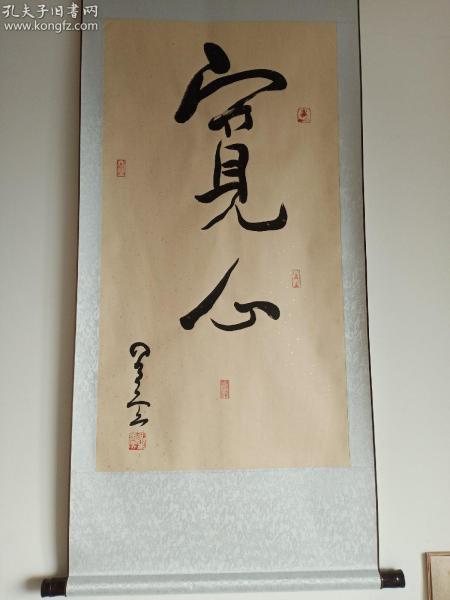 孔夫子旧书网
www.kongfz.com
寬
心
星云